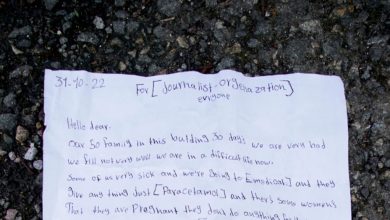 31-10-22
For [Journalist-orgenazation]
evryone
Hello dear.
Our 50 Family in this bulding 30 days we are very bad
we fill not very well we are in a difficult life now.
some of us very sick and we're going to Emedical] and they
give any thing Just [Paracetamol] and there's some women's
That they are Pregnant they don't do anything